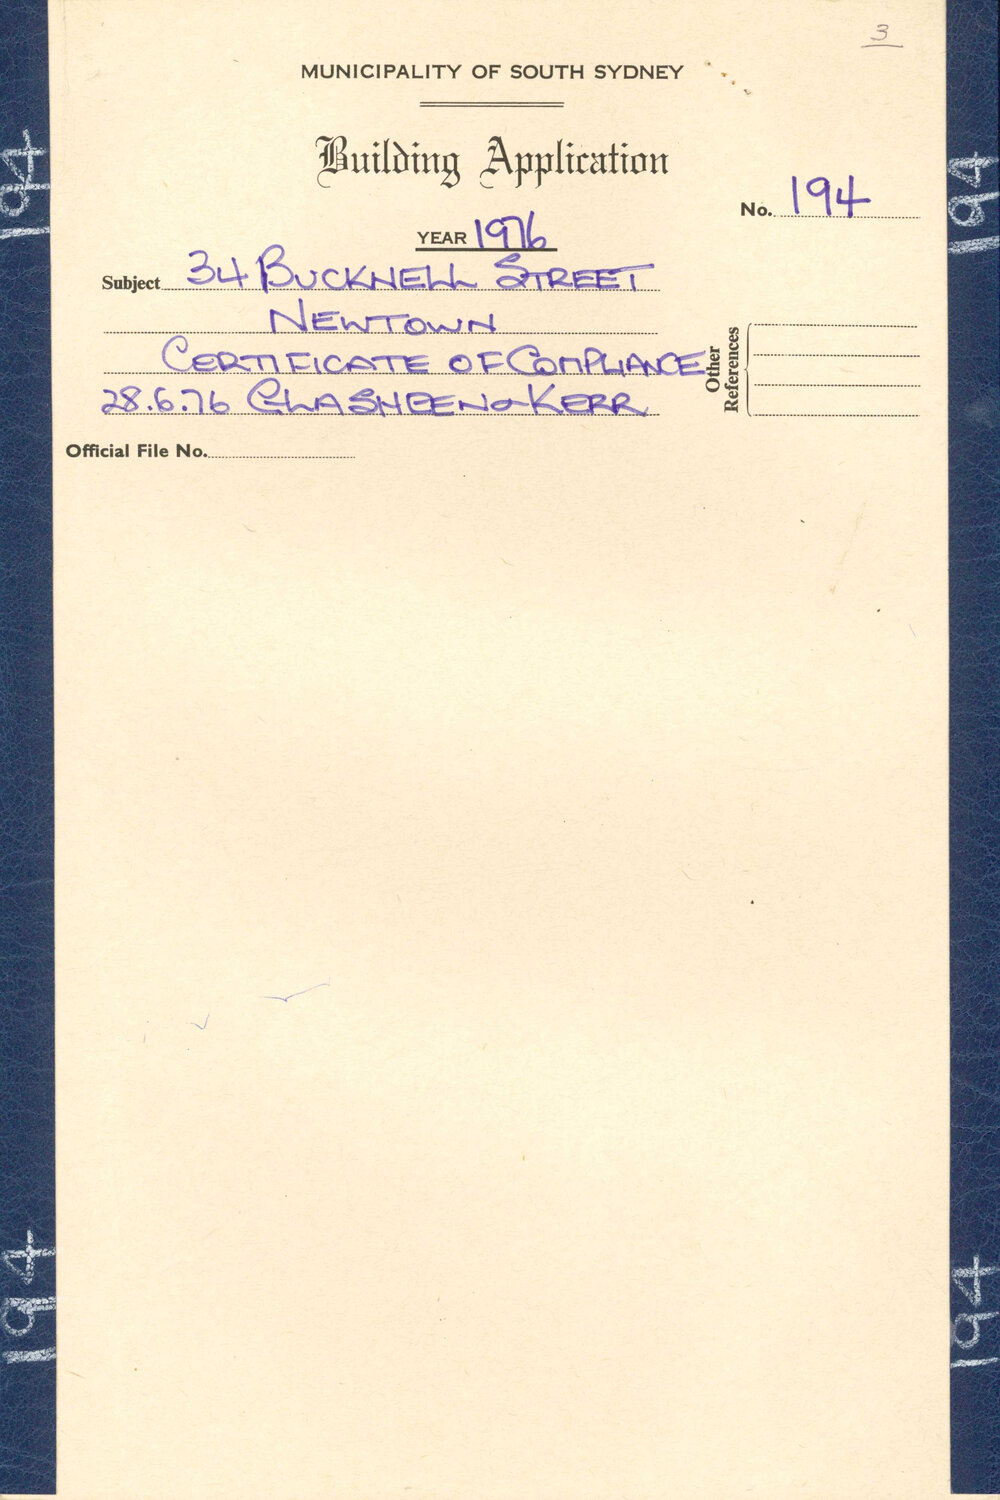 3
MUNICIPALITY OF SOUTH SYDNEY
Building Application
No. 194
YEAR 1976
Subject 34 BUCKNELL STREET
NEWTOWN
CERTIFICATE OF COMPLIANCE
28.6.76 GLASHEEN & KERR
Other References
Official File No.
194
194
194
194